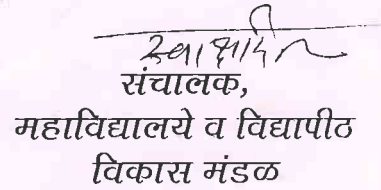 स्वाक्षरीत
संचालक,
महाविद्यालये व विद्यापीठ
विकास मंडळ